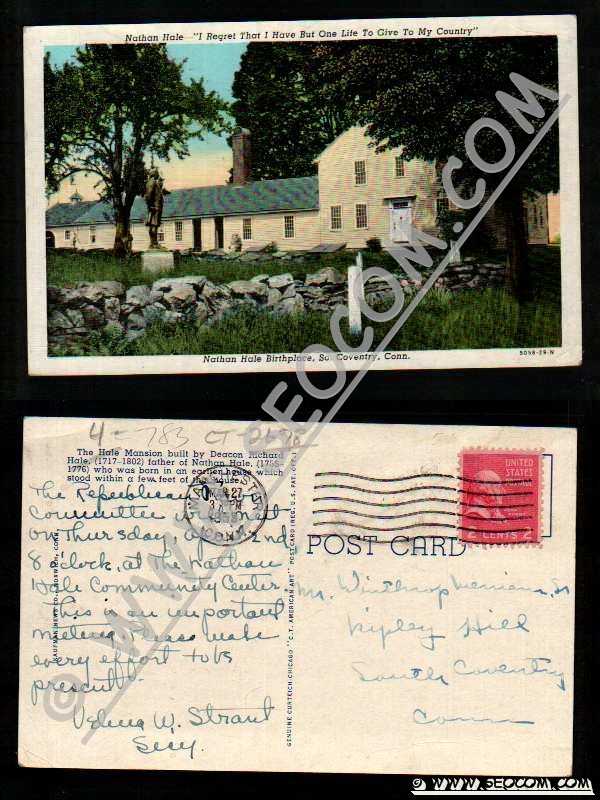 Nathan Hale - "I Regret That I Have But One Life To Give To My Country"
Nathan Hale Birthplace, So. Coventry, Conn.
5058-29-N
© WWW.SEOCOM.COM
4-783 CT
The Hale Mansion built by Deacon Richard
Hale, (1717-1802) father of Nathan Hale, (1755-
1776) who was born in an earlier house which
stood within a few feet of the house.
The Republican
Committee meet
on Thursday,
8 o'clock, at the Nathan
Hale Community Center.
This is an important
meeting. Please make
every effort to be
present.
Velma W. Strant
Secy.
GENUINE CURTEICH-CHICAGO "C.T. AMERICAN ART" POST CARD (REG. U.S. PAT. OFF.)
CONN.
UNITED
STATES
2 CENTS 2
POST CARD
Mr. Winthrop Merriam, Sr
Ripley Hill
South Coventry
Conn
© WWW.SEOCOM.COM